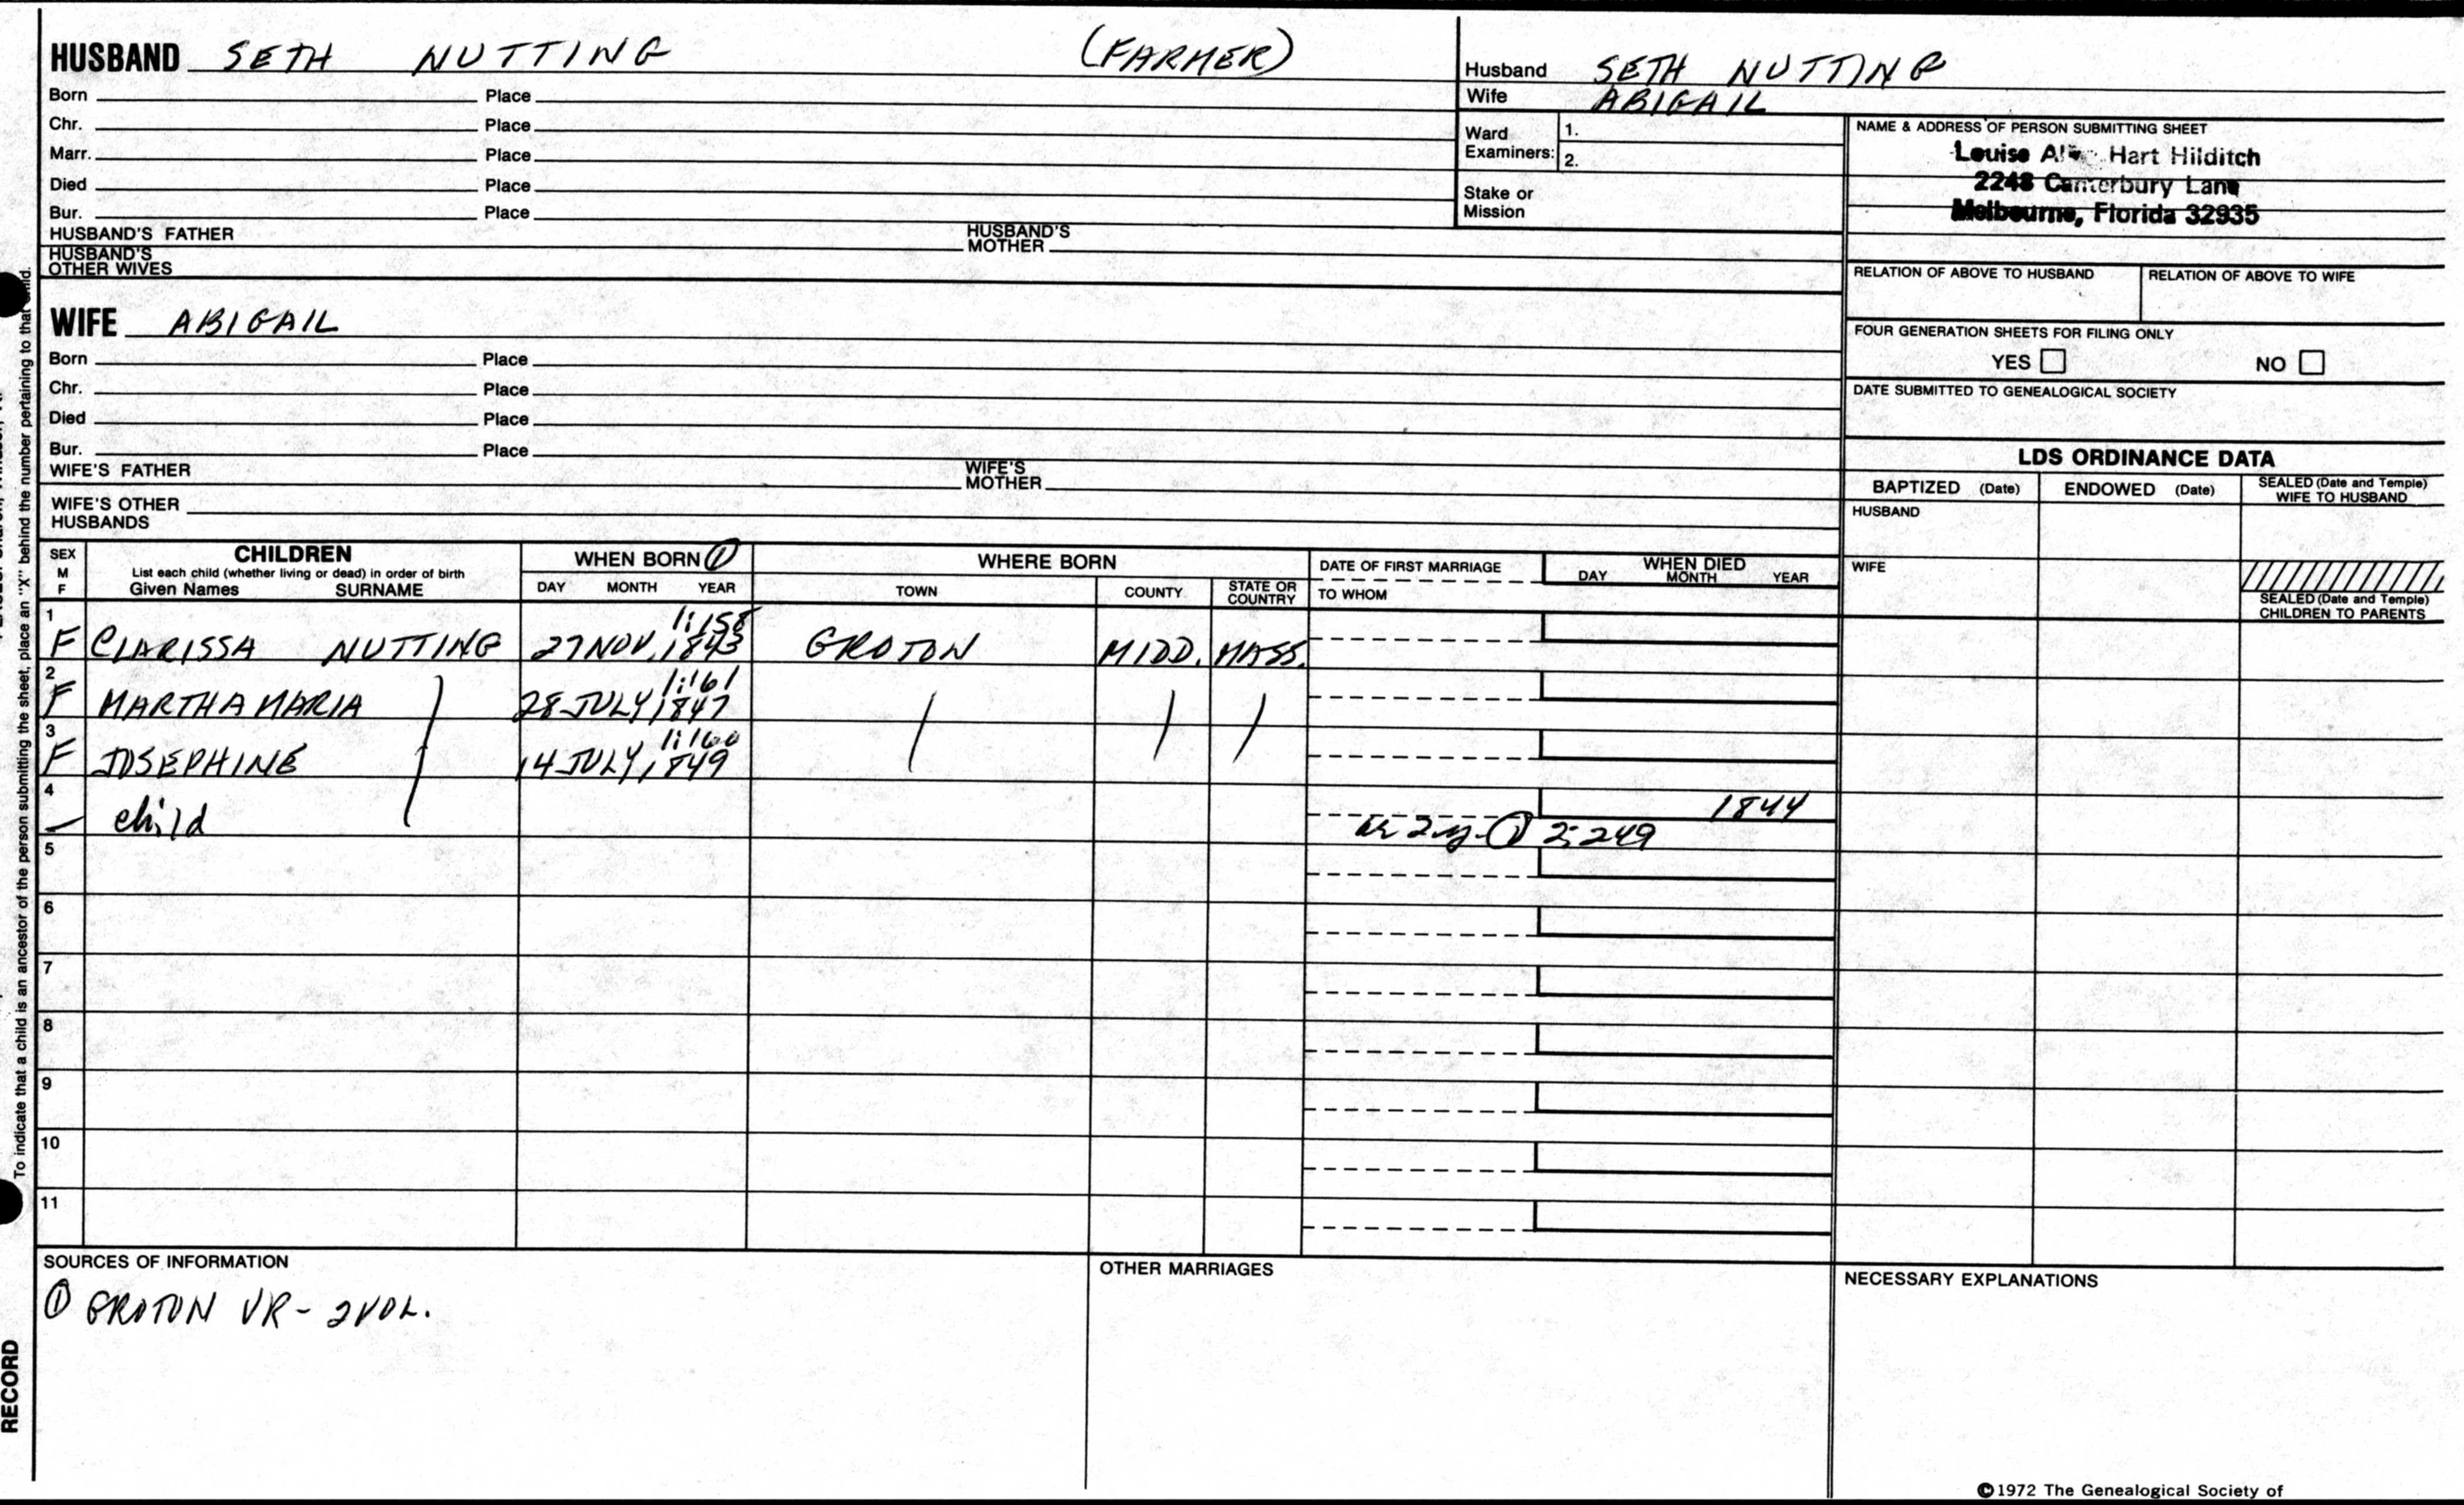 HUSBAND SETH NUTTING (FARMER)
Born Place
Chr. Place
Marr. Place
Died Place
Bur. Place
HUSBAND'S FATHER HUSBAND'S MOTHER
HUSBAND'S OTHER WIVES
Husband SETH NUTTING
Wife ABIGAIL
Ward Examiners: 1.
2.
Stake or Mission
NAME & ADDRESS OF PERSON SUBMITTING SHEET
Louise Hart Hilditch
2248 Canterbury Lane
Melbourne, Florida 32935
RELATION OF ABOVE TO HUSBAND RELATION OF ABOVE TO WIFE
FOUR GENERATION SHEETS FOR FILING ONLY
YES NO
DATE SUBMITTED TO GENEALOGICAL SOCIETY
WIFE ABIGAIL
Born Place
Chr. Place
Died Place
Bur. Place
WIFE'S FATHER WIFE'S MOTHER
WIFE'S OTHER HUSBANDS
LDS ORDINANCE DATA
BAPTIZED (Date) ENDOWED (Date) SEALED (Date and Temple) WIFE TO HUSBAND
HUSBAND
WIFE
SEALED (Date and Temple) CHILDREN TO PARENTS
SEX M F
CHILDREN
List each child (whether living or dead) in order of birth
Given Names SURNAME
WHEN BORN ①
DAY MONTH YEAR
WHERE BORN
TOWN COUNTY STATE OR COUNTRY
DATE OF FIRST MARRIAGE
TO WHOM
WHEN DIED
DAY MONTH YEAR
1 1:158
F CLARISSA NUTTING 27 NOV, 1843 GROTON MIDD. MASS.
2 1:161
F MARTHA MARIA 28 JULY, 1847
3 1:160
F JOSEPHINE 14 JULY, 1849
4 1844
— child
5 2y. ① 2:249
6
7
8
9
10
11
SOURCES OF INFORMATION
① GROTON VR - 2 VOL.
OTHER MARRIAGES
NECESSARY EXPLANATIONS
©1972 The Genealogical Society of
To indicate that a child is an ancestor of the person submitting the sheet, place an "X" behind the number pertaining to that child.
RECORD